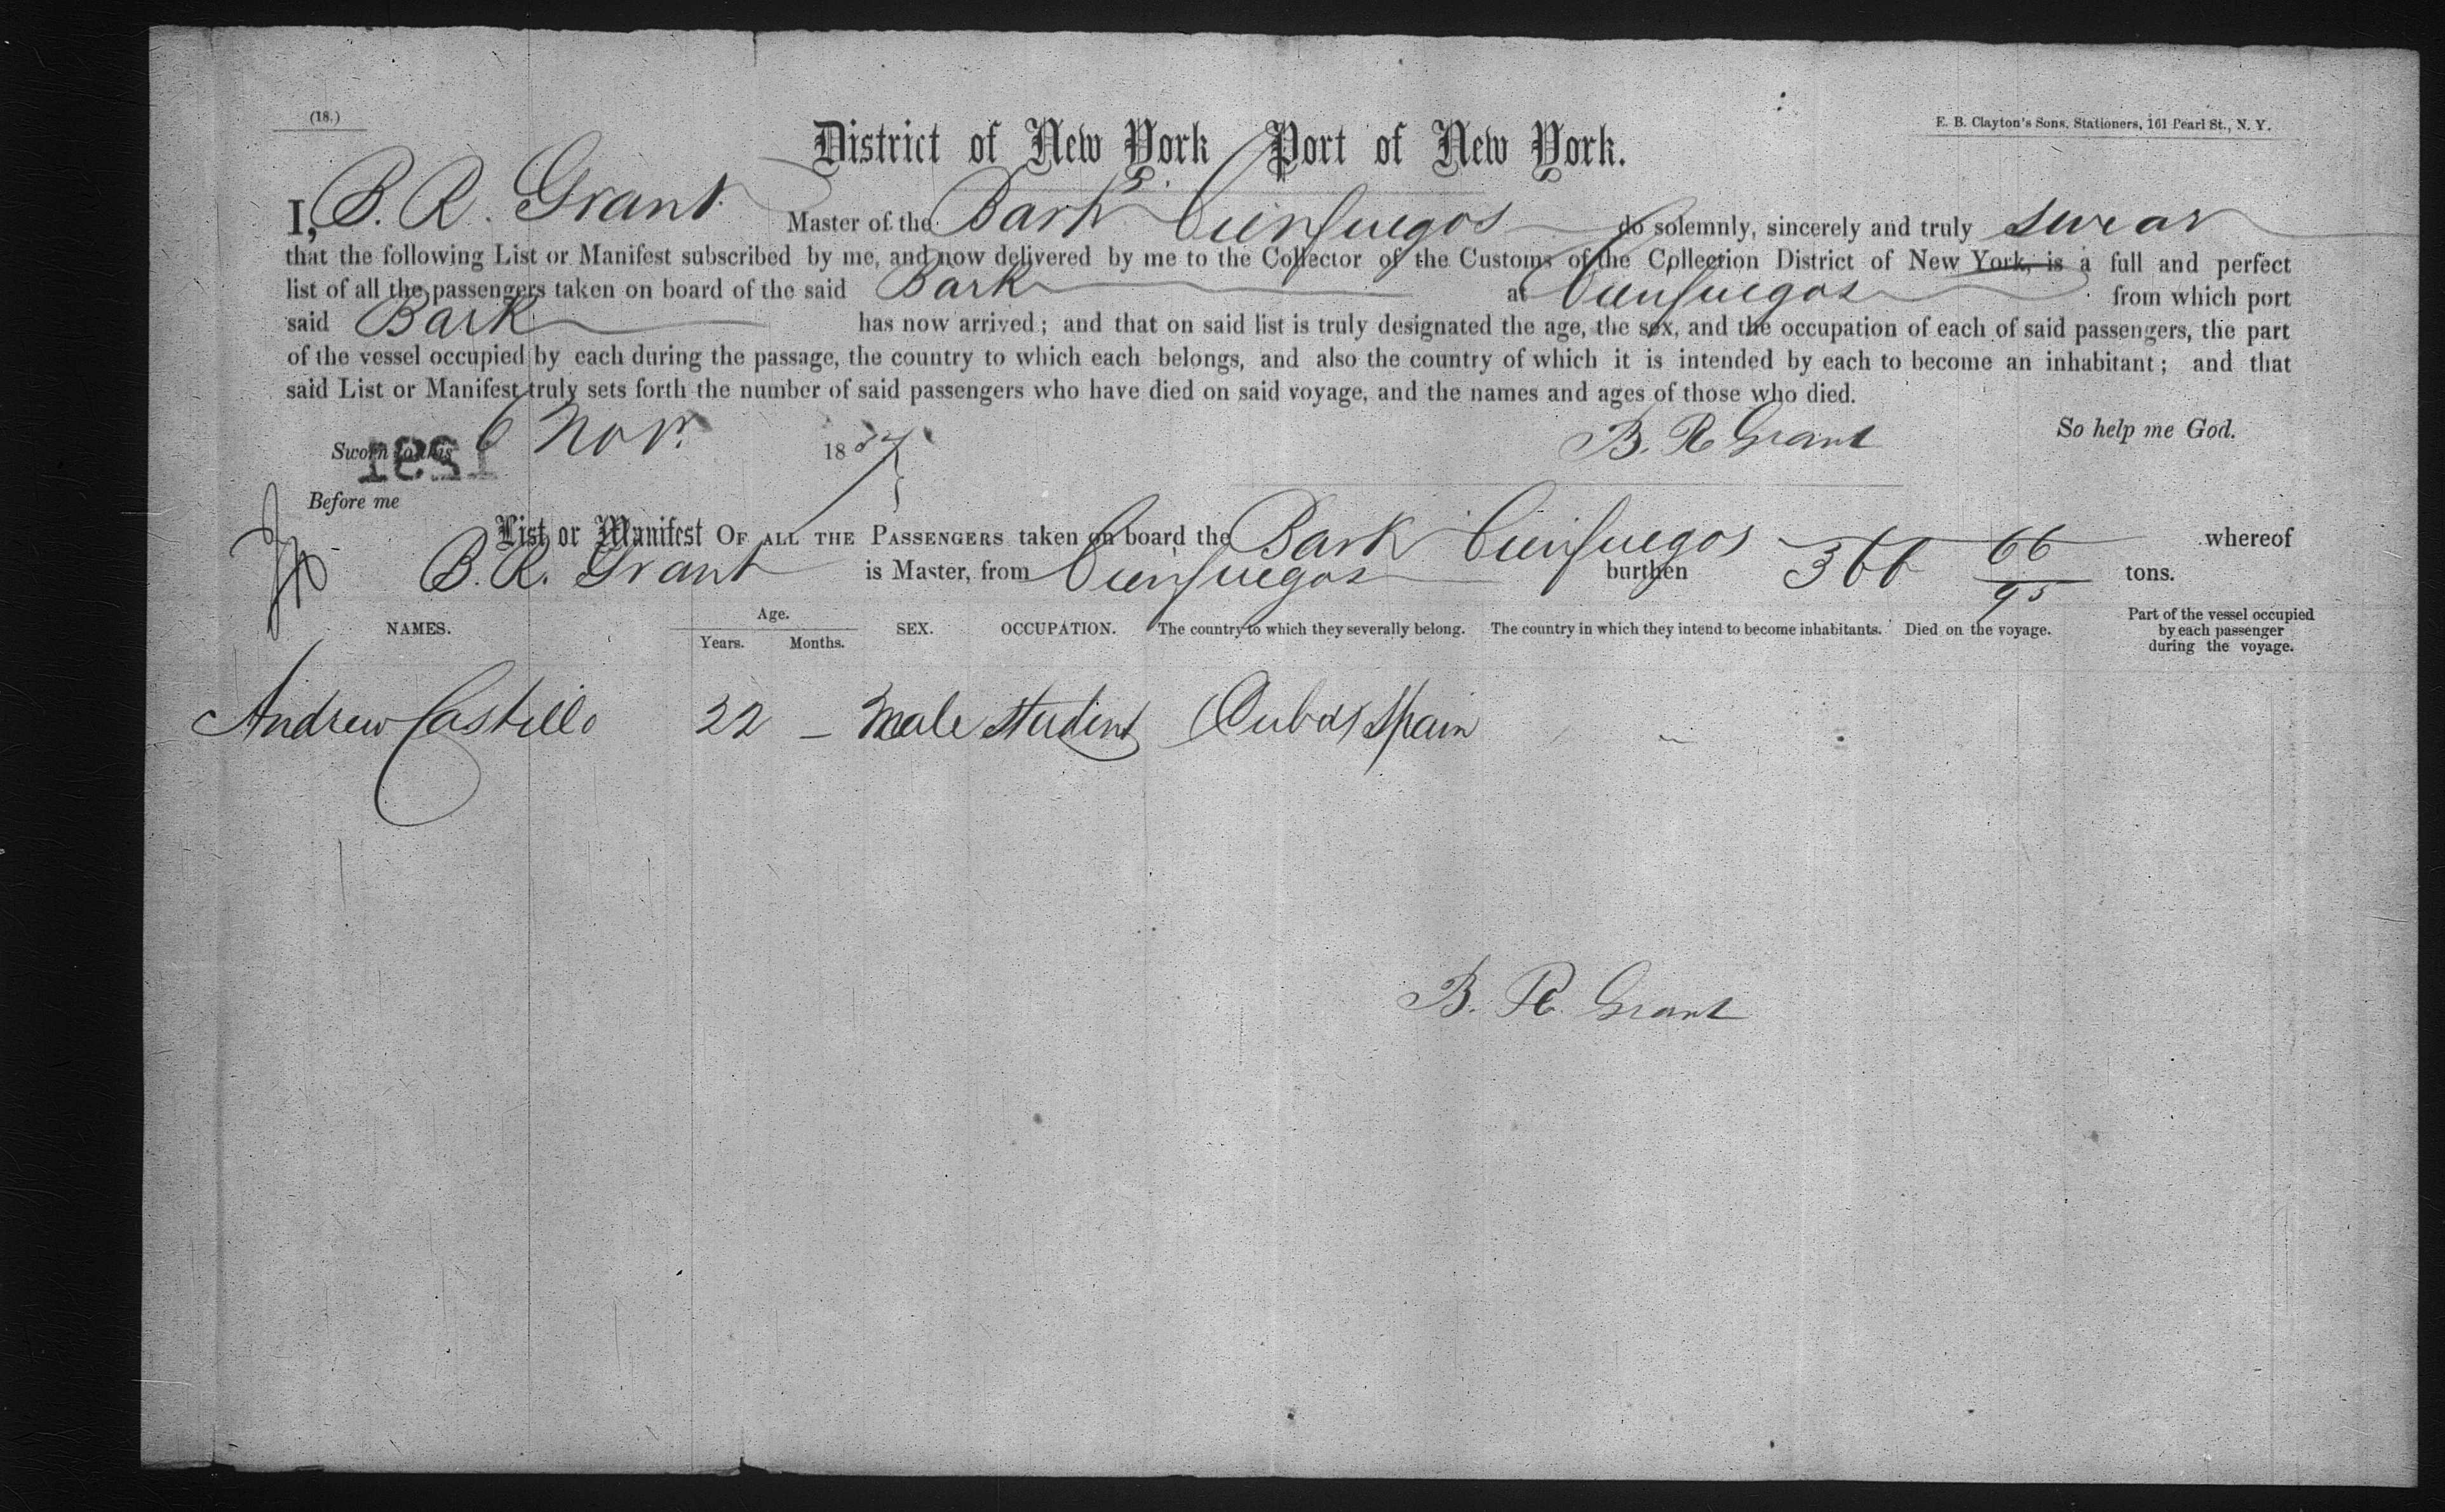 (18.)
E. B. Clayton's Sons, Stationers, 161 Pearl St., N. Y.
District of New York Port of New York.
I, B. R. Grant Master of the Bark Cienfuegos do solemnly, sincerely and truly swear
that the following List or Manifest subscribed by me, and now delivered by me to the Collector of the Customs of the Collection District of New York, is a full and perfect
list of all the passengers taken on board of the said Bark at Cienfuegos from which port
said Bark has now arrived; and that on said list is truly designated the age, the sex, and the occupation of each of said passengers, the part
of the vessel occupied by each during the passage, the country to which each belongs, and also the country of which it is intended by each to become an inhabitant; and that
said List or Manifest truly sets forth the number of said passengers who have died on said voyage, and the names and ages of those who died.
Sworn to this 6 Nov. 18 B. R. Grant So help me God.
1291
Before me
List or Manifest OF ALL THE PASSENGERS taken on board the Bark Cienfuegos whereof
B. R. Grant is Master, from Cienfuegos burthen 366 66/95 tons.
NAMES. Age. Years. Months. SEX. OCCUPATION. The country to which they severally belong. The country in which they intend to become inhabitants. Died on the voyage. Part of the vessel occupied by each passenger during the voyage.
Andrew Castillo 22 — Male Student Cuba Spain
B. R. Grant